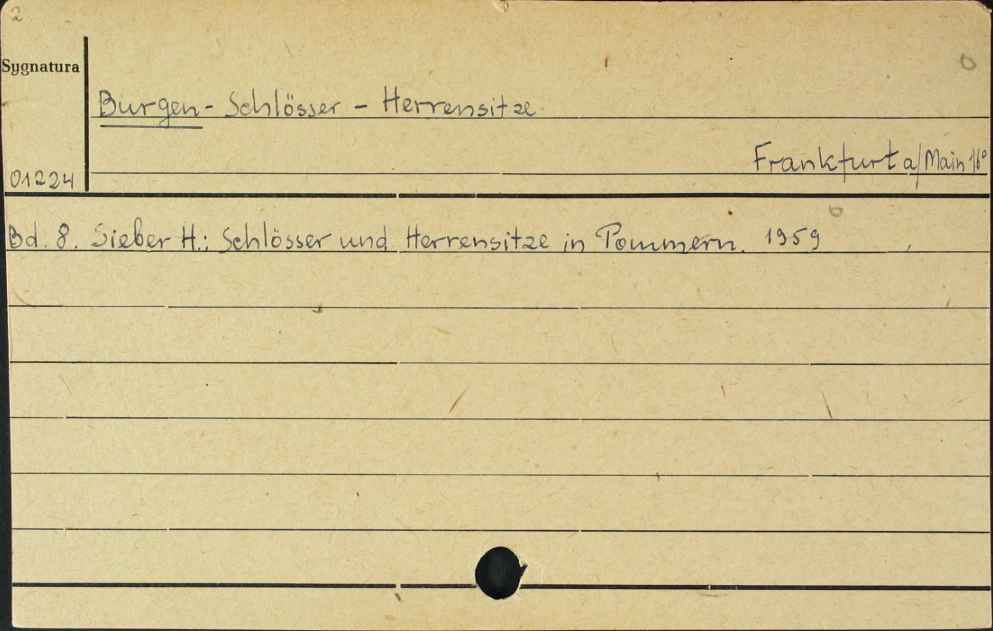 2
Sygnatura
Burgen - Schlösser - Herrensitze.
Frankfurt a/Main 16°
01224
Bd. 8. Sieber H.: Schlösser und Herrensitze in Pommern. 1959